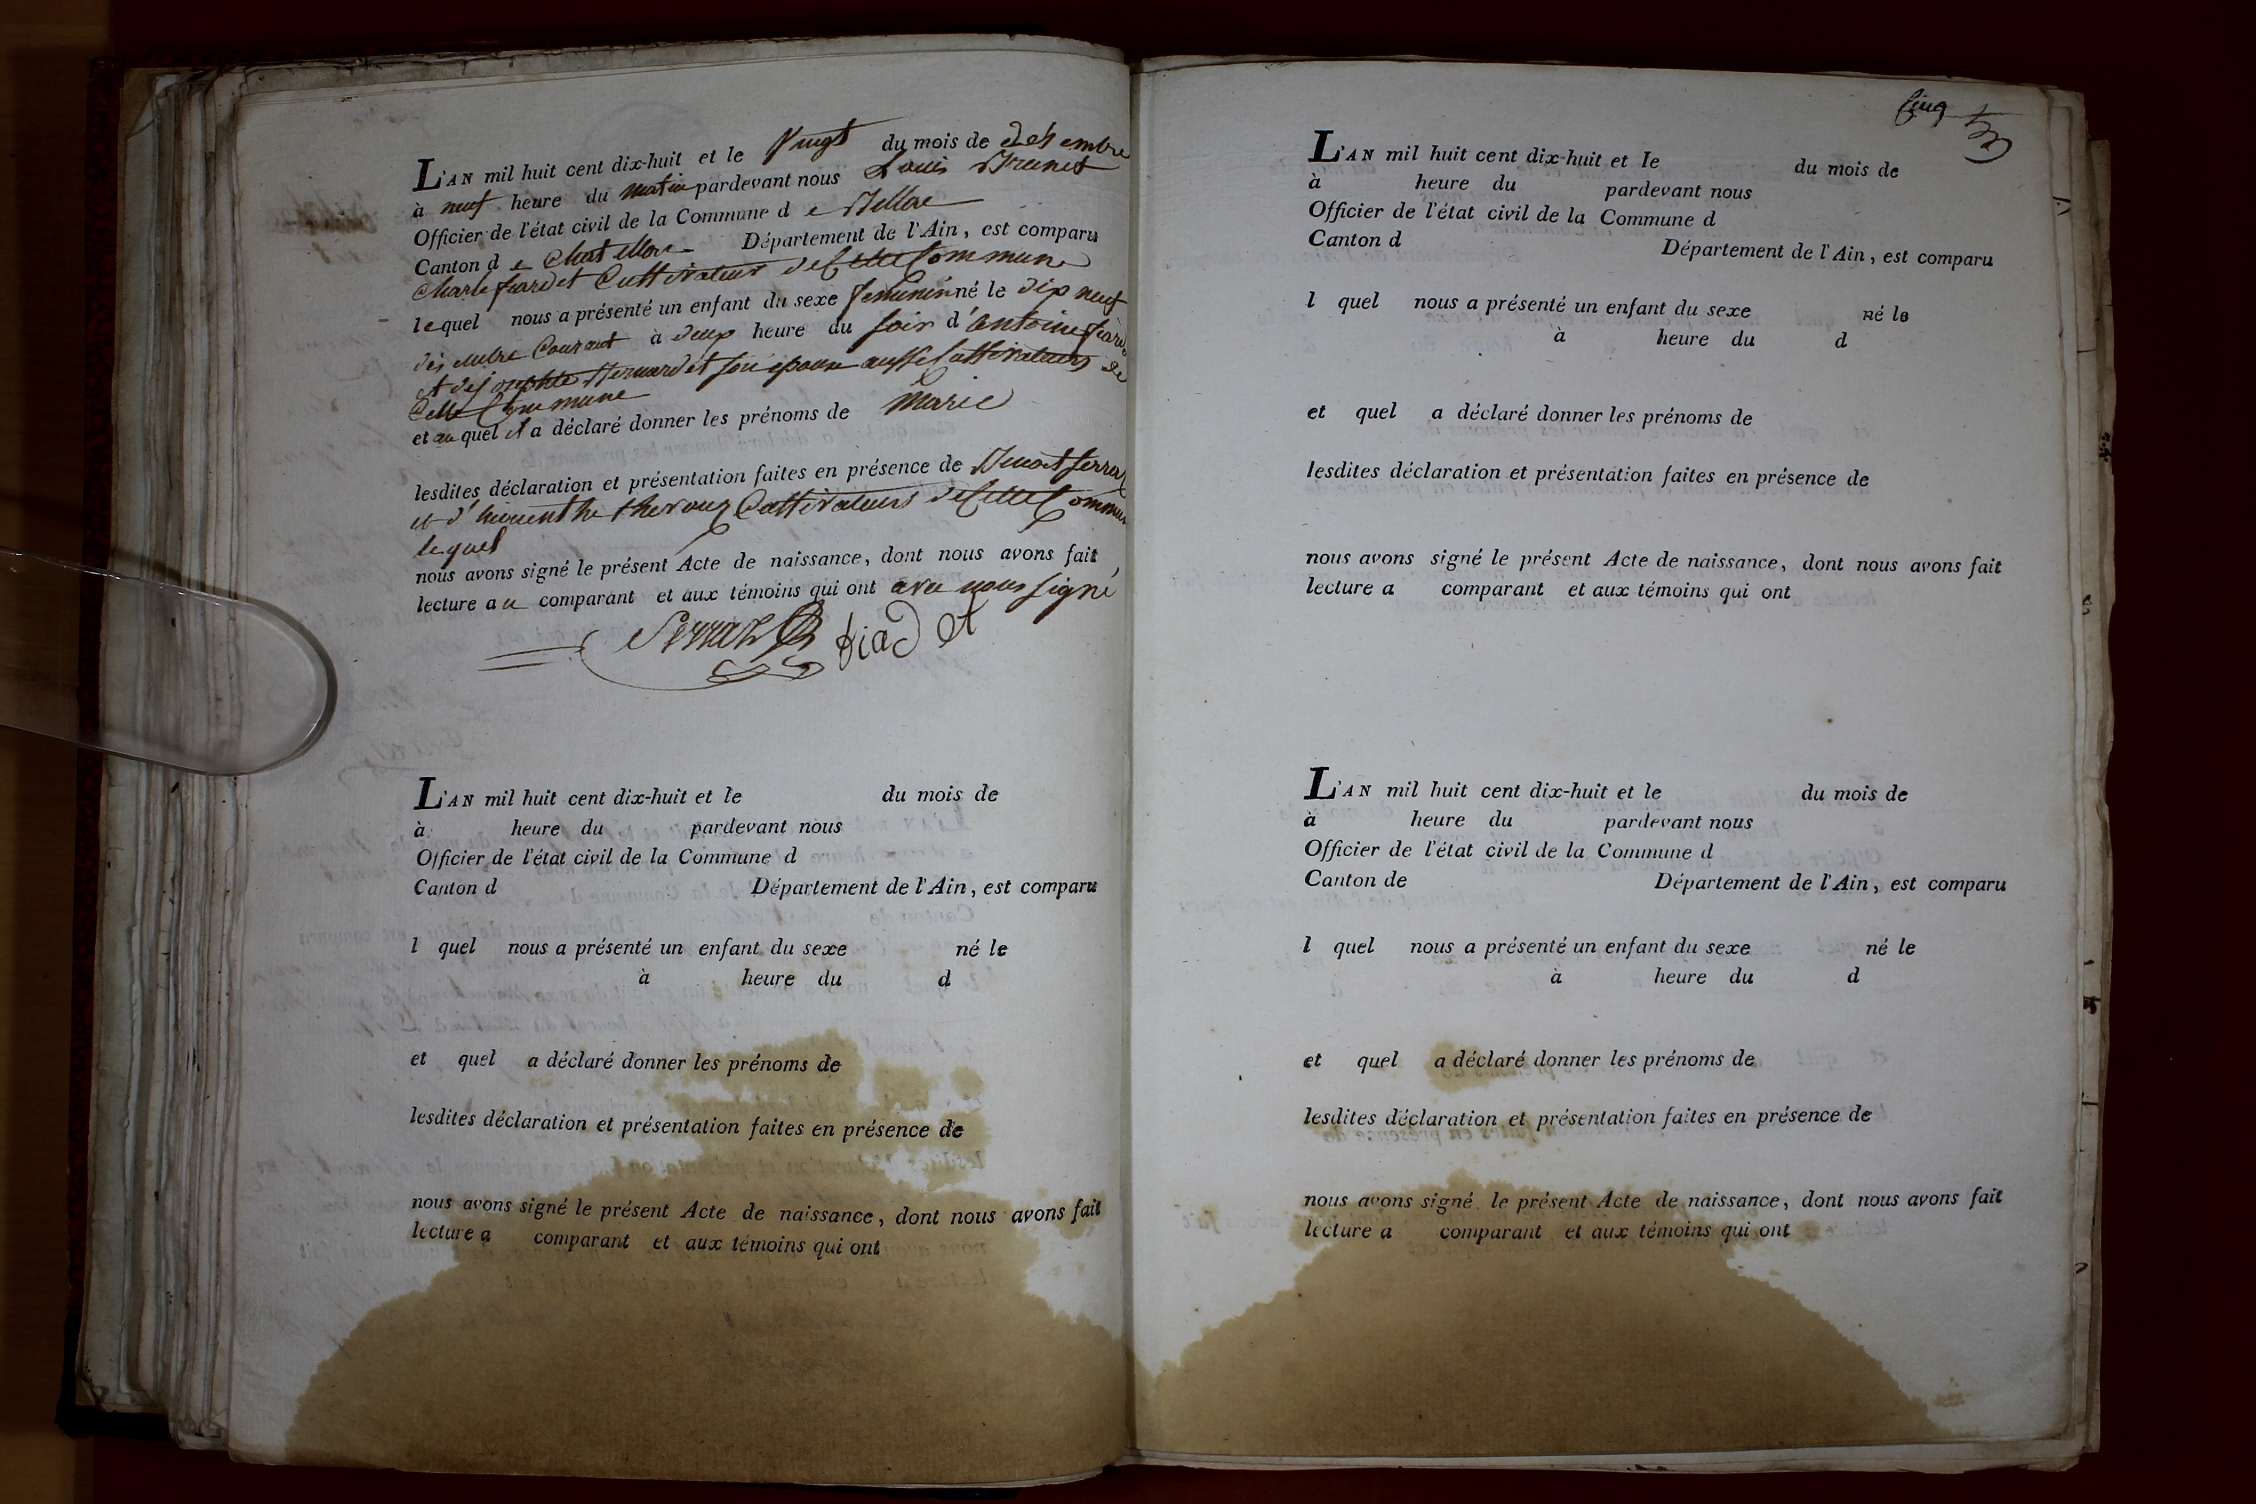 L'AN mil huit cent dix-huit et le Vingt du mois de decembre
à neuf heure du matin pardevant nous Louis Brunet
Officier de l'état civil de la Commune de
Canton de Chatillon Département de l'Ain, est comparu
Charle fiardet Cultivateur de Cette Commune
lequel nous a présenté un enfant du sexe femininné le dix neuf
décembre Courant à deux heure du soir d'antoine fiard
et de josephte Bernardet son epouse aussi Cultivateurs de
Cette Commune
et au quel il a déclaré donner les prénoms de Marie
lesdites déclaration et présentation faites en présence de Benoit ferraz
et d' Cultivateurs de Cette Commun
lequel
nous avons signé le présent Acte de naissance, dont nous avons fait
lecture au comparant et aux témoins qui ont avec nous signé
Serraz fiadet
L'AN mil huit cent dix-huit et le du mois de
à heure du pardevant nous
Officier de l'état civil de la Commune d
Canton d Département de l'Ain, est comparu
l quel nous a présenté un enfant du sexe né le
à heure du d
et quel a déclaré donner les prénoms de
lesdites déclaration et présentation faites en présence de
nous avons signé le présent Acte de naissance, dont nous avons fait
lecture a comparant et aux témoins qui ont
Cinq
L'AN mil huit cent dix-huit et le du mois de
à heure du pardevant nous
Officier de l'état civil de la Commune d
Canton d Département de l'Ain, est comparu
l quel nous a présenté un enfant du sexe né le
à heure du d
et quel a déclaré donner les prénoms de
lesdites déclaration et présentation faites en présence de
nous avons signé le présent Acte de naissance, dont nous avons fait
lecture a comparant et aux témoins qui ont
L'AN mil huit cent dix-huit et le du mois de
à heure du pardevant nous
Officier de l'état civil de la Commune d
Canton de Département de l'Ain, est comparu
l quel nous a présenté un enfant du sexe né le
à heure du d
et quel a déclaré donner les prénoms de
lesdites déclaration et présentation faites en présence de
nous avons signé le présent Acte de naissance, dont nous avons fait
lecture a comparant et aux témoins qui ont